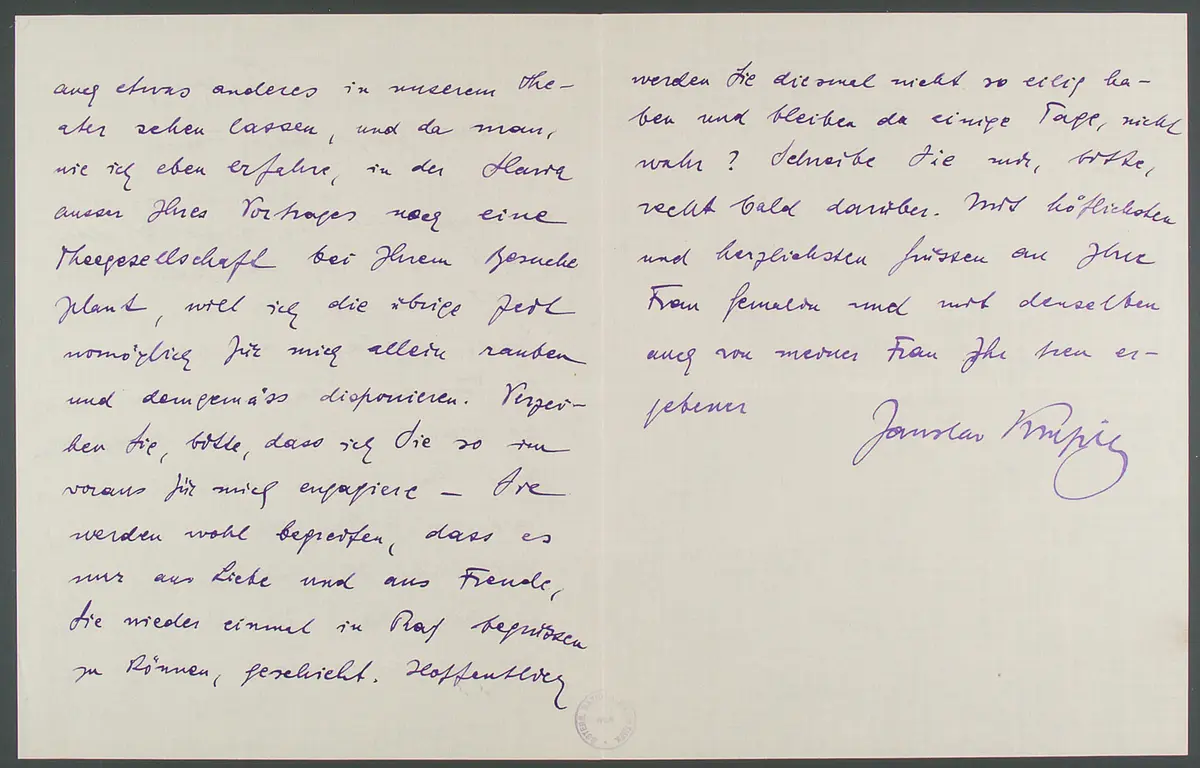 auch etwas anderes in unserem The-
ater sehen lassen, und da man,
wie ich eben erfahre, in der Urania
ausser Ihres Vortrages noch eine
Theegesellschaft bei Ihrem Besuche
plant, will ich die übrige Zeit
womöglich für mich allein rauben
und demgemäss disponieren. Verzei-
hen Sie, bitte, dass ich Sie so im
voraus für mich engagiere – Sie
werden wohl begreifen, dass es
nur aus Liebe und aus Freude,
Sie wieder einmal in Prag begrüssen
zu können, geschieht. Hoffentlich
werden Sie diesmal nicht so eilig ha-
ben und bleiben da einige Tage, nicht
wahr? Schreibe Sie mir, bitte,
recht bald darüber. Mit höflichsten
und herzlichsten Grüssen an Ihre
Frau Gemalin und mit denselben
auch von meiner Frau Ihr treu er-
gebener
Jaroslav Kvapil